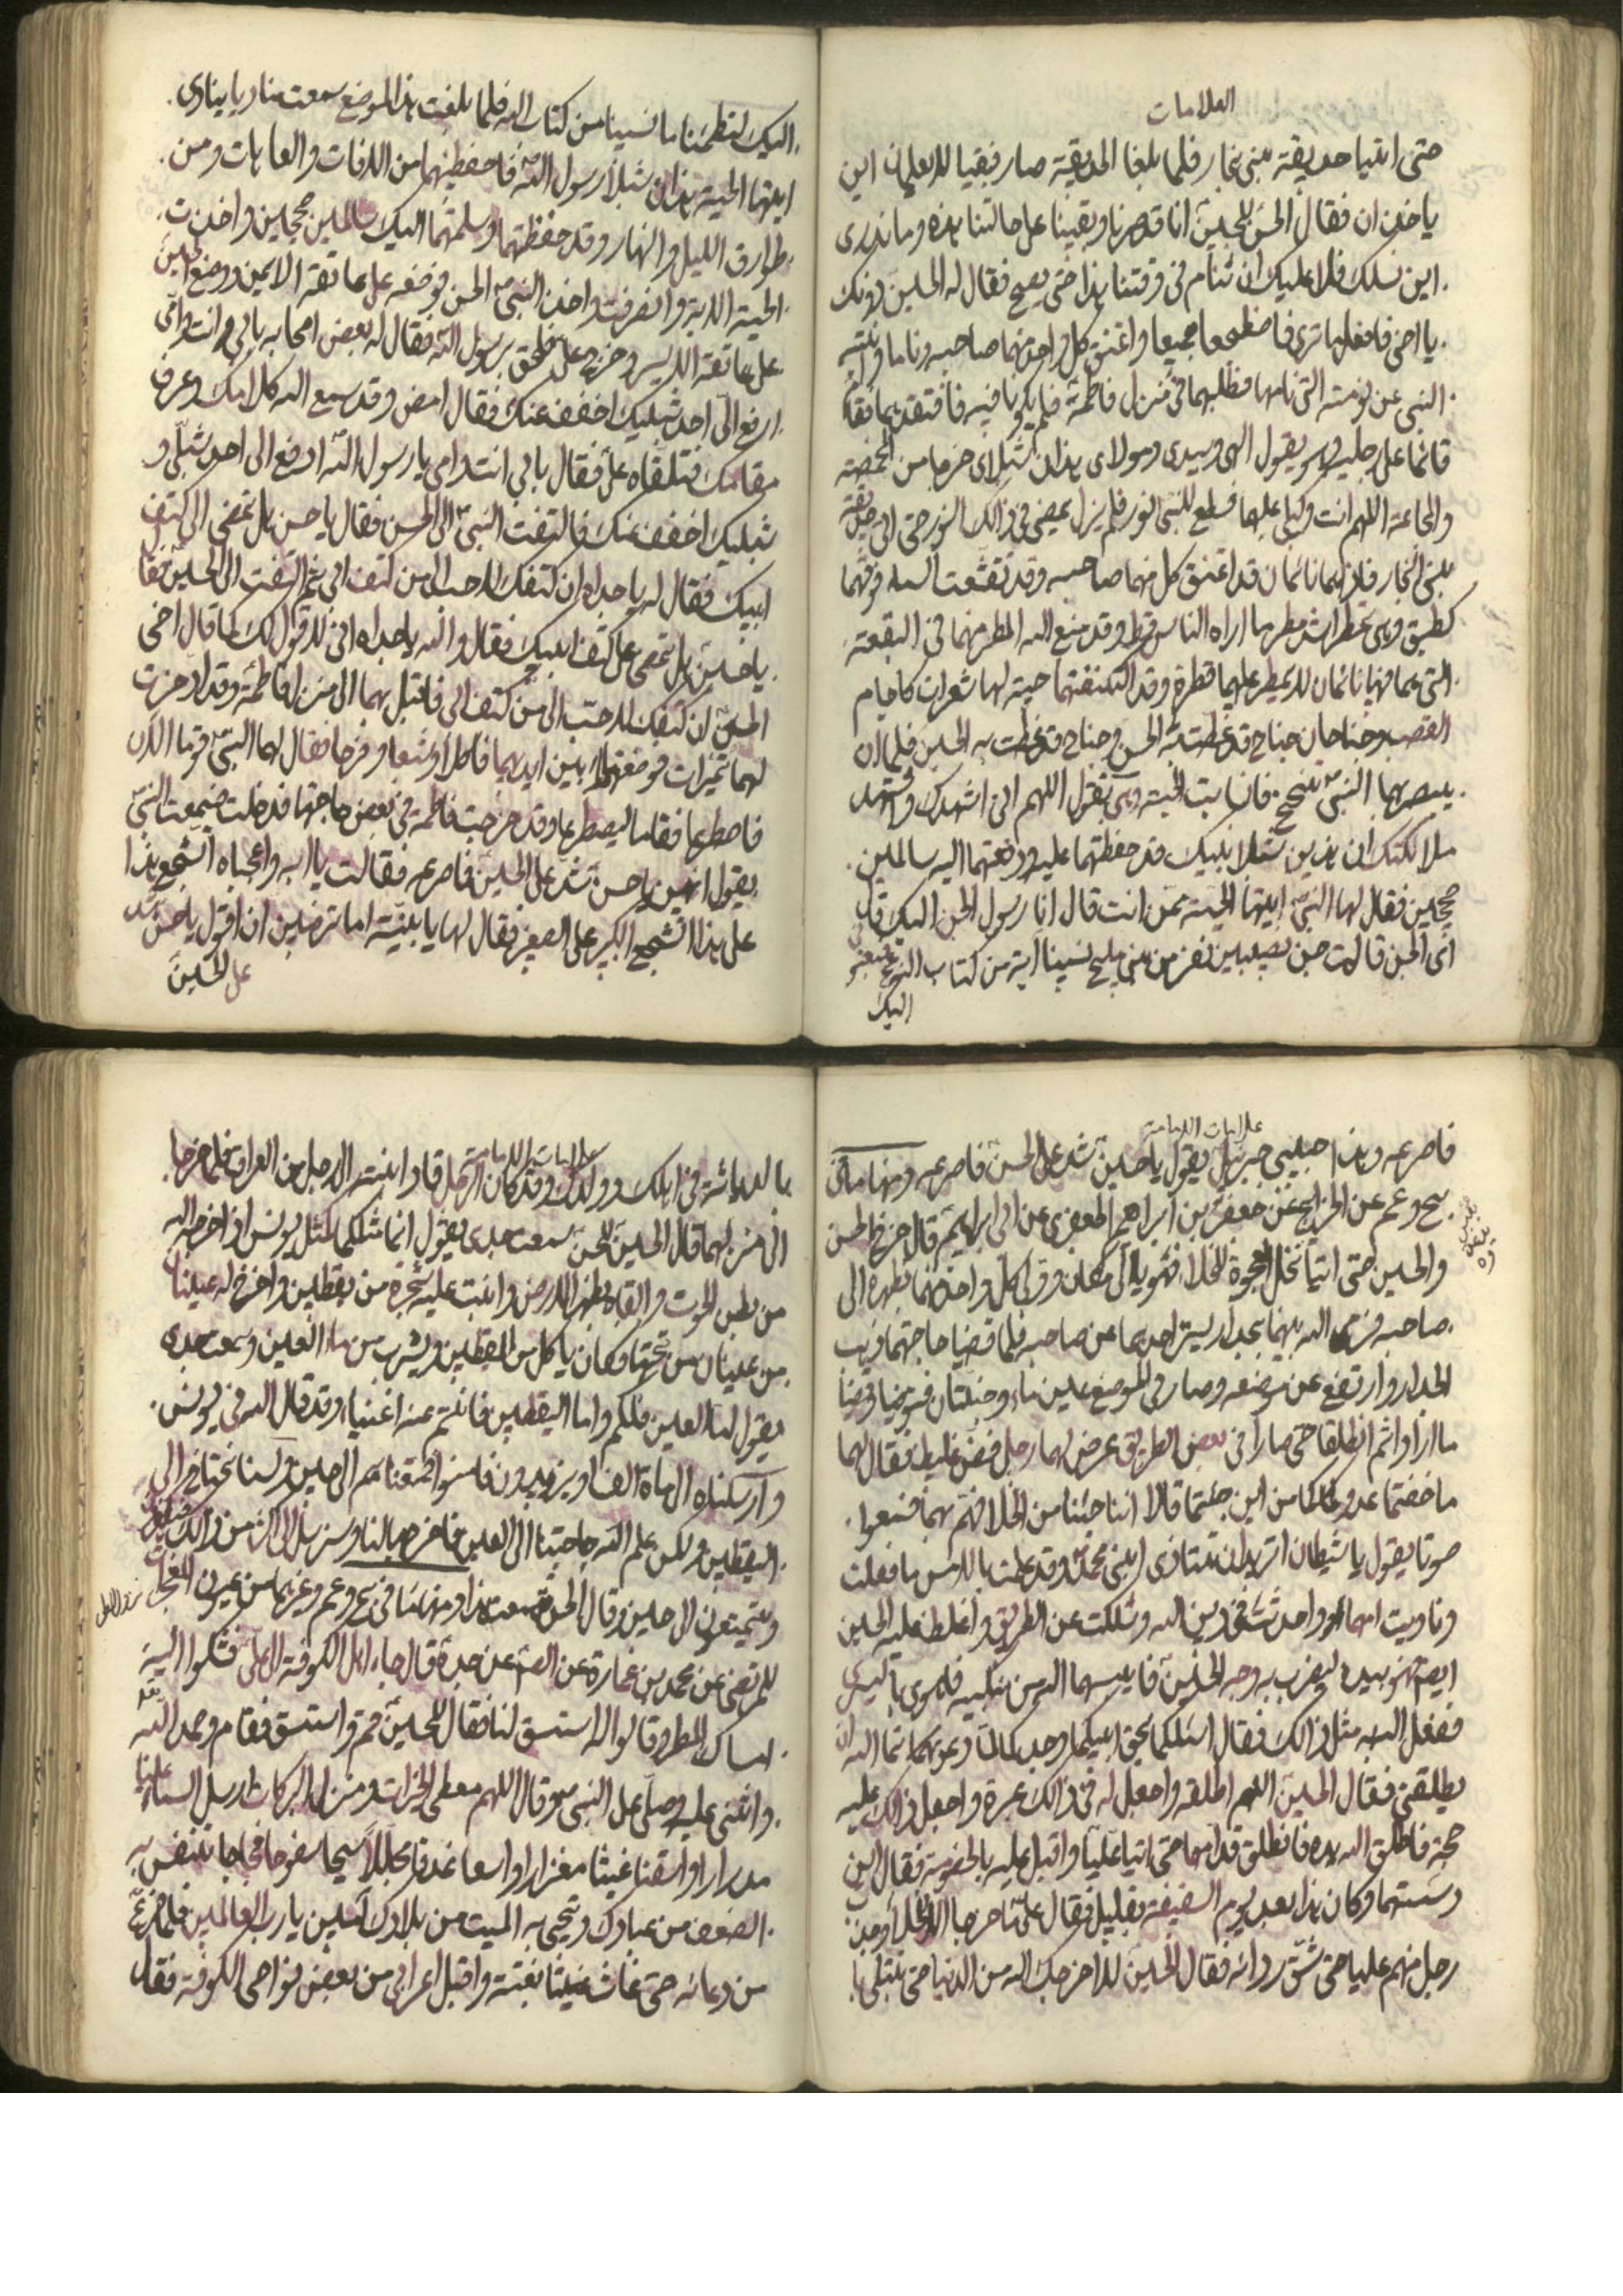 العلامات
حتى اتيا حديقة بنى نجار فلما بلغا الحديقة صار بقيا لا يعلمان اين
ياخذان فقال الحسن للحسين انا قد حرنا وبقينا على حالتنا هذه وما ندرى
اين نسلك فلا عليك ان تنام فى وقتنا هذا حتى يصبح فقال له الحسين دونك
يا اخى فافعل ما ترى فاضطجعا جميعا واعتنق كل واحد منهما صاحبه وناما وانتبه
النبى عن نومته التى نامها فطلبهما فى منزل فاطمة فلم يكونا فيه فافتقدهما فقام
قائما على رجليه وهو يقول الهى وسيدى ومولاى هذان شبلاى خرجا من المخمصة
والمجاعة اللهم انت وكيلى عليهما فسطع للنبى نور فلم يزل يمضى فى ذلك النور حتى اتى حديقة
بنى النجار فاذا هما نائمان قد اعتنق كل منهما صاحبه وقد تقشعت السماء فوقهما
كطبق وهى تمطر اشد مطر ما اراه الناس قط وقد منع الله المطر منهما فى البقعة
التى هما فيها نائمان لا يمطر عليهما قطرة وقد اكتنفتهما حية لها شعرات كاجام
القصب وجناحان جناح قد غطت به الحسن وجناح قد غطت به الحسين فلما ان
يبصر بهما النبى تنحنح فانسابت الحية وهى تقول اللهم انى اشهدك واشهد
ملائكتك ان هذين شبلا نبيك قد حفظتهما عليه ودفعتهما اليه سالمين
صحيحين فقال لها النبى ايتها الحية ممن انت قال انا رسول الجن اليك قال
اى الجن قالت جن نصيبين نفر من بنى مليح نسينا اية من كتاب الله فبعثونى
اليك
اليك لتعلمنا ما نسينا من كتاب الله فلما بلغت هذا الموضع سمعت مناديا ينادى
ايتها الحية هذان شبلا رسول الله فاحفظيهما من الافات والعاهات ومن
طوارق الليل والنهار وقد حفظتهما وسلمتهما اليك سالمين صحيحين واخذت
الحية الاية وانصرفت واخذ النبى الحسن فوضعه على عاتقه الايمن ووضع الحسين
على عاتقه الايسر وخرج على فلحق برسول الله فقال له بعض اصحابه بابى انت وامى
ارفع الى احد شبليك اخفف عنك فقال امض وقد سمع الله كلامك وعرف
مقامك فتلقاه على فقال بابى انت وامى يا رسول الله ارفع الى احد شبلى و
شبليك اخفف عنك فالتفت النبى الى الحسن فقال يا حسن هل تمضى الى كتف
ابيك فقال له يا جداه ان كتفك لاحب الى من كتف ابى ثم التفت الى الحسين فقال
يا حسين هل تمضى على كتف ابيك فقال والله يا جداه انى لاقول لك كما قال اخى
الحسن ان كتفك لاحب الى من كتف ابى فاقبل بهما الى منزل فاطمة وقد ادخرت
لهما تميرات فوضعتها بين ايديهما فاكلا وشبعا وفرحا فقال لهما النبى قوما الان
فاصطرعا فقاما ليصطرعا وقد خرجت فاطمة فى بعض حاجتها فدخلت فسمعت النبى
يقول ايهن يا حسن شد على الحسين فاصرعه فقالت يا ابه واعجباه اتشجع هذا
على هذا اتشجع الكبير على الصغير فقال لها يا بنية اما ترضين ان اقول يا حسن شد
على الحسين
علامات الامامة
فاصرعه وهذا حبيبى جبرئيل يقول يا حسين شد على الحسن فاصرعه ومنها ما فى
يج وعم عن الخرايج عن جعفر بن ابراهيم الجعفرى عن ابى ابراهيم قال خرج الحسن
والحسين حتى اتيا نخل العجوة للخلاء فهويا الى مكان وولى كل واحد منهما بظهره الى
صاحبه فرمى الله بينهما بجدار يستر احدهما عن صاحبه فلما قضيا حاجتهما ذهب
الجدار وارتفع عن موضعه وصار فى الموضع عين ماء وجنتان فتوضيا وقضيا
ما ارادا ثم انطلقا حتى صارا فى بعض الطريق عرض لهما رجل فظ غليظ فقال لهما
ما خفتما عدوكما من اين جئتما قالا اننا جئنا من الخلاء فهم بهما فسمعوا
صوتا يقول يا شيطان اتريد ان تناوى ابنى محمد وقد علمت بالامس ما فعلت
وناويت امهما واحدثت فى دين الله وسلكت عن الطريق واغلظ عليه الحسين
ايضا فهوى بيده ليضرب به وجه الحسين فايبسهما الله من منكبيه فاهوى باليسرى
ففعل الله به مثل ذلك فقال اسئلكما بحق ابيكما وجدكما لما دعوتما الله ان
يطلقنى فقال الحسين اللهم اطلقه واجعل له فى ذلك عبرة واجعل ذلك عليه
حجة فاطلق الله يده فانطلق قدامهما حتى اتيا عليا واقبل عليه بالخصومة فقال اين
دسستهما وكان هذا بعد يوم السقيفة بقليل فقال على ما خرجا الا للخلاء وجذب
رجل منهم عليا حتى شق ردائه فقال الحسين لا اخرجك الله من الدنيا حتى تبتلى
علامات الامامة
بالدياثة فى اهلك وولدك وقد كان الرجل قاد ابنته الى رجل من العراق فلما خرجا
الى منزلهما قال الحسين للحسن سمعت جدى يقول انما مثلكما كمثل يونس اذ اخرجه الله
من بطن الحوت والقاه بظهر الارض وانبت عليه شجرة من يقطين واخرج له عينان
من عينان من تحتها فكان ياكل من اليقطين ويشرب من ماء العين وسمعت جدى
يقول لنا العين فلكم واما اليقطين فانتم عنه اغنياء وقد قال الله فى يونس
وارسلناه الى ماة الف او يزيدون فامنوا فمتعناهم الى حين ولسنا نحتاج الى
اليقطين ولكن علم الله حاجتنا الى العين فاخرجها لنا وسنرسل الى اكثر من ذلك
ويتمتعون الى حين وقال الحسن قد سمعت هذا ومنها ما فى يج وعم وغيرهما من عيون المعجزات
للمرتضى عن محمد بن عمارة عن الصم عن جده قال جاء اهل الكوفة الى على فشكوا اليه
امساك المطر وقالوا له استسق لنا فقال للحسين قم واستسق فقام وحمد الله
واثنى عليه وصلى على النبى وقال اللهم معطى الخيرات ومنزل البركات ارسل السماء علينا
مدرارا واسقنا غيثا مغزارا واسعا غدقا مجللا سحا سفوحا فجاجا تنفس به
الضعف من عبادك وتحيى به الميت من بلادك امين يا رب العالمين فلما فرغ
من دعائه حتى غاث غيثا بغتة واقبل اعرابى من بعض نواحى الكوفة فقال